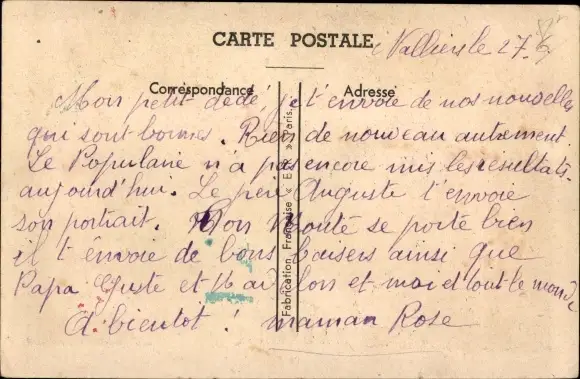 CARTE POSTALE
Valliers le 27.
Correspondance
Adresse
Mon petit dédé, je t'envoie de nos nouvelles
qui sont bonnes. Rien de nouveau autrement.
Le Populaire n'a pas encore mis les résultats
aujourd'hui. Le père Auguste t'envoie
son portrait. Mon se porte bien
il t'envoie de bons baisers ainsi que
Papa Guste et et moi et tout le monde
A bientot ! maman Rose
Fabrication Française « E » Paris